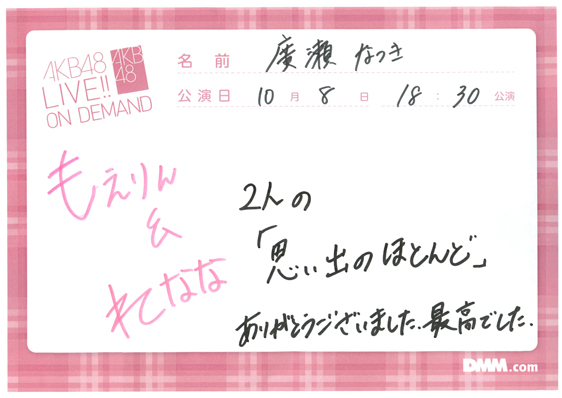 AKB48
LIVE!!
ON DEMAND
AKB
48
名前 廣瀬 なつき
公演日 10月8日 18:30公演
もえりん
&
れなな
2人の
「思い出のほとんど」
ありがとうございました。最高でした。
DMM.com